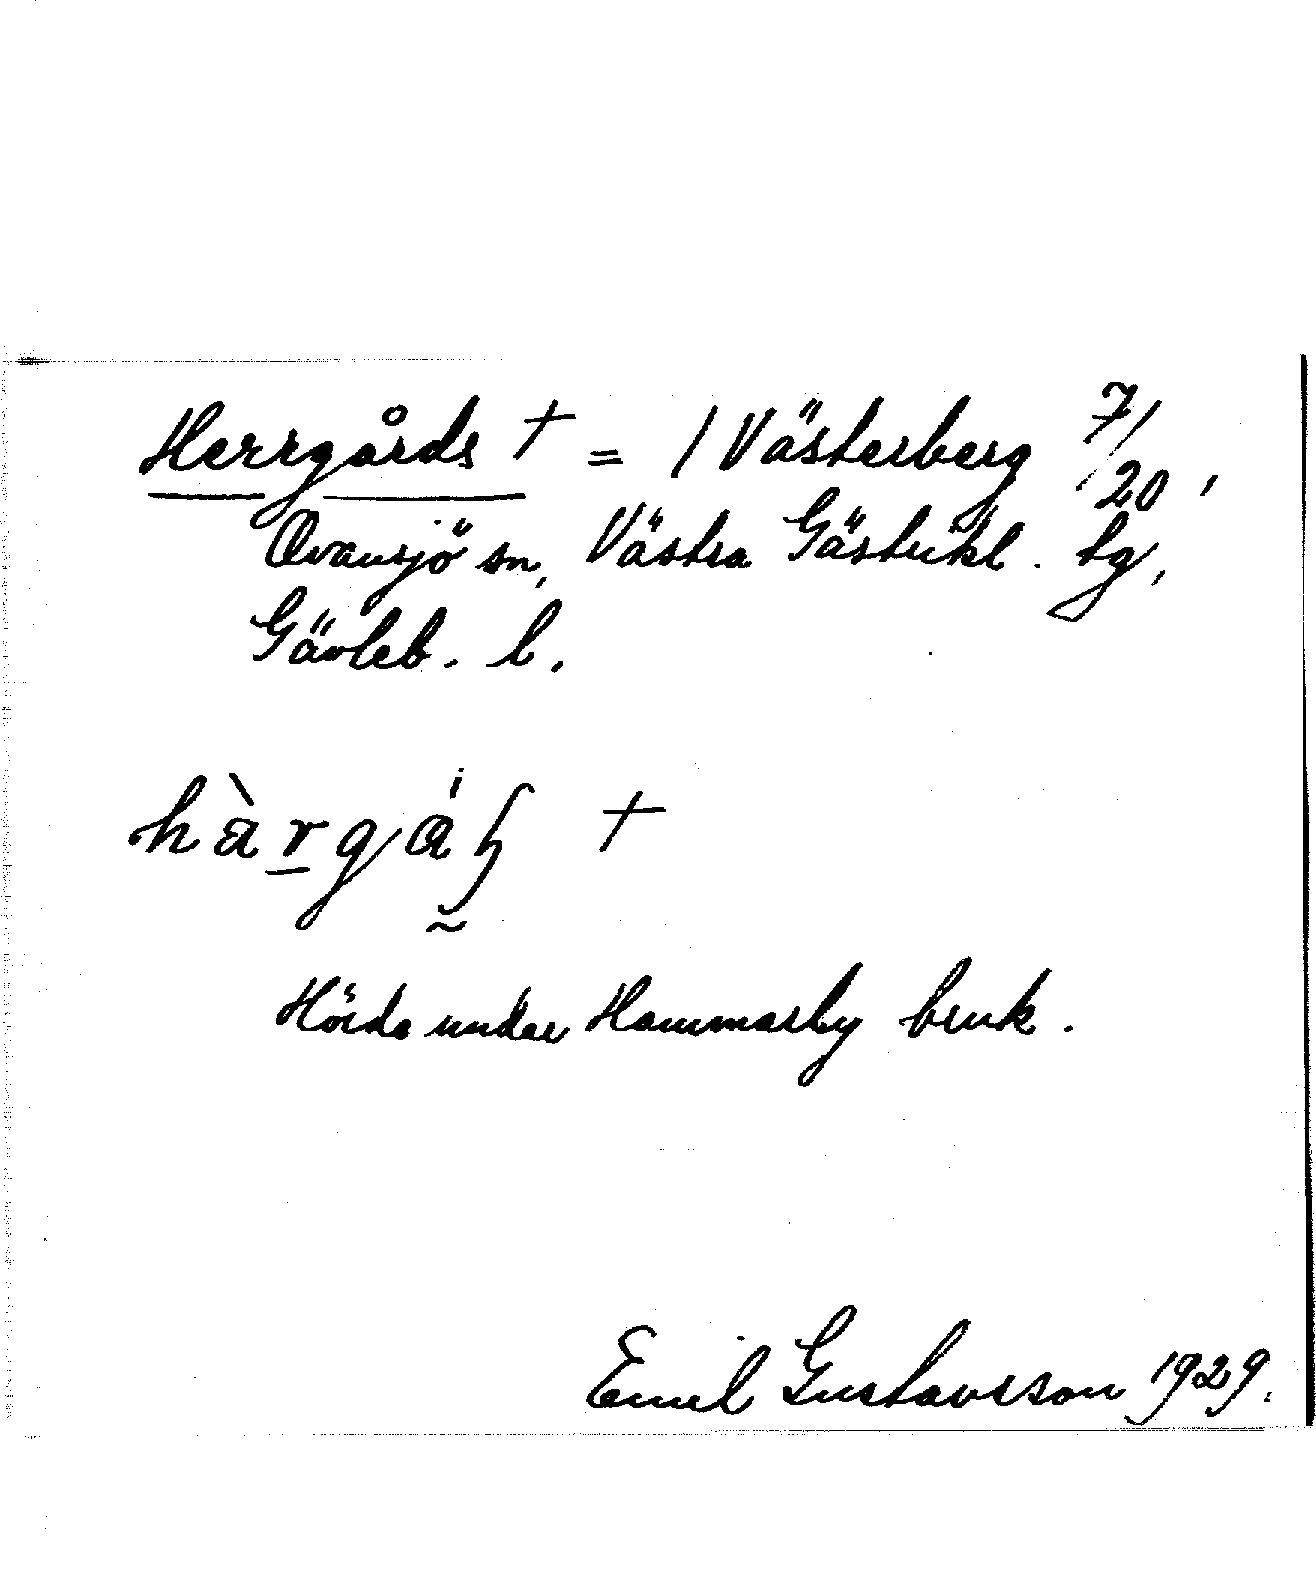 Herrgårds † = / Västerberg 7/20,
Ovansjö sn, Västra Gästrikl. tg,
Gävleb. l.
†
Hörde under Hammarby bruk.
Emil Gustavsson 1929.